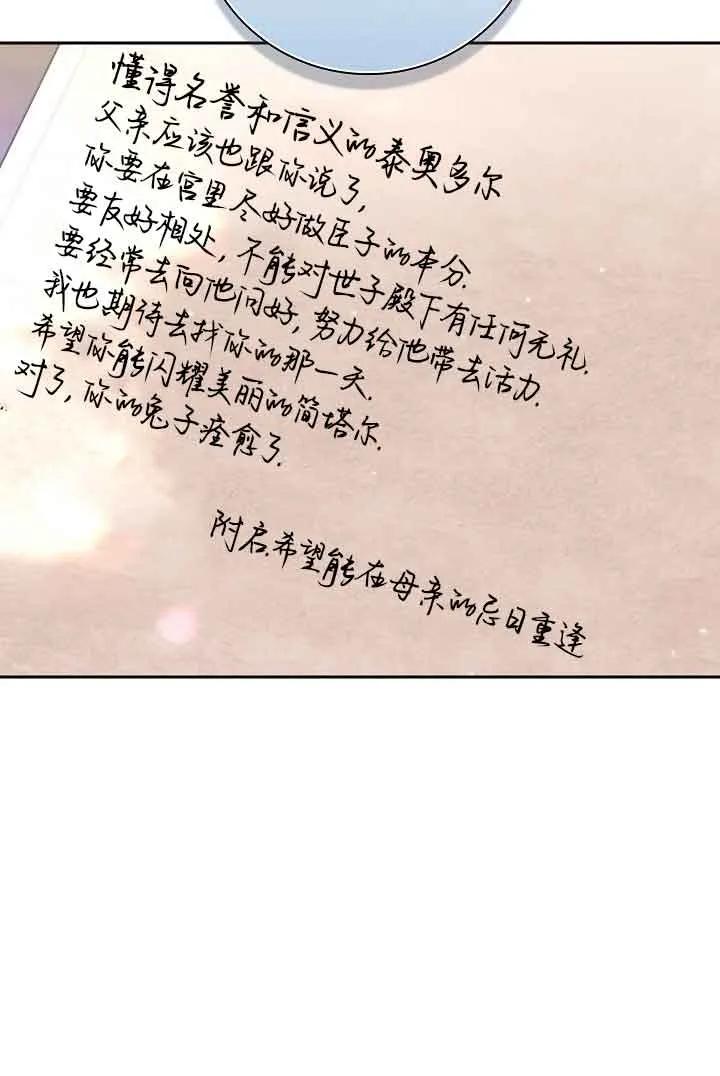 懂得名誉和信义的泰奥多尔
父亲应该也跟你说了,
你要在宫里尽好做臣子的本分.
要友好相处, 不能对世子殿下有任何无礼.
要经常去向他问好, 努力给他带去活力.
我也期待去找你的那一天.
希望你能闪耀美丽的简塔尔.
对了, 你的兔子痊愈了.
附启.希望能在母亲的忌日重逢